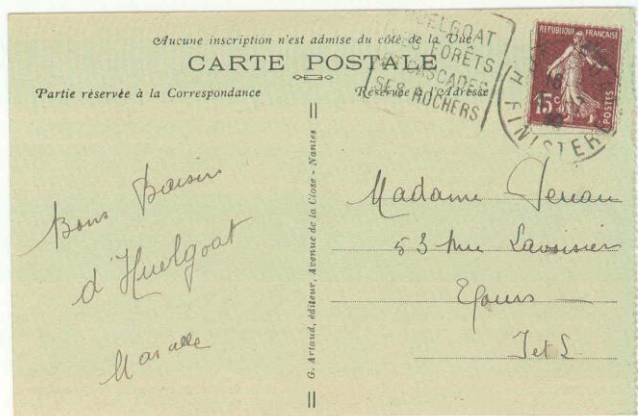 Aucune inscription n'est admise du côté de la Vue
CARTE POSTALE
Partie réservée à la Correspondance
Réservée à l'Adresse
HUELGOAT
SES FORÊTS
SES CASCADES
SES ROCHERS
RÉPUBLIQUE FRANÇAISE
15c
POSTES
FINISTERE
Bons baisers
d'Huelgoat
G. Artaud, éditeur, Avenue de la Close - Nantes
Madame
53 rue Lavoisier
Tours
I et L